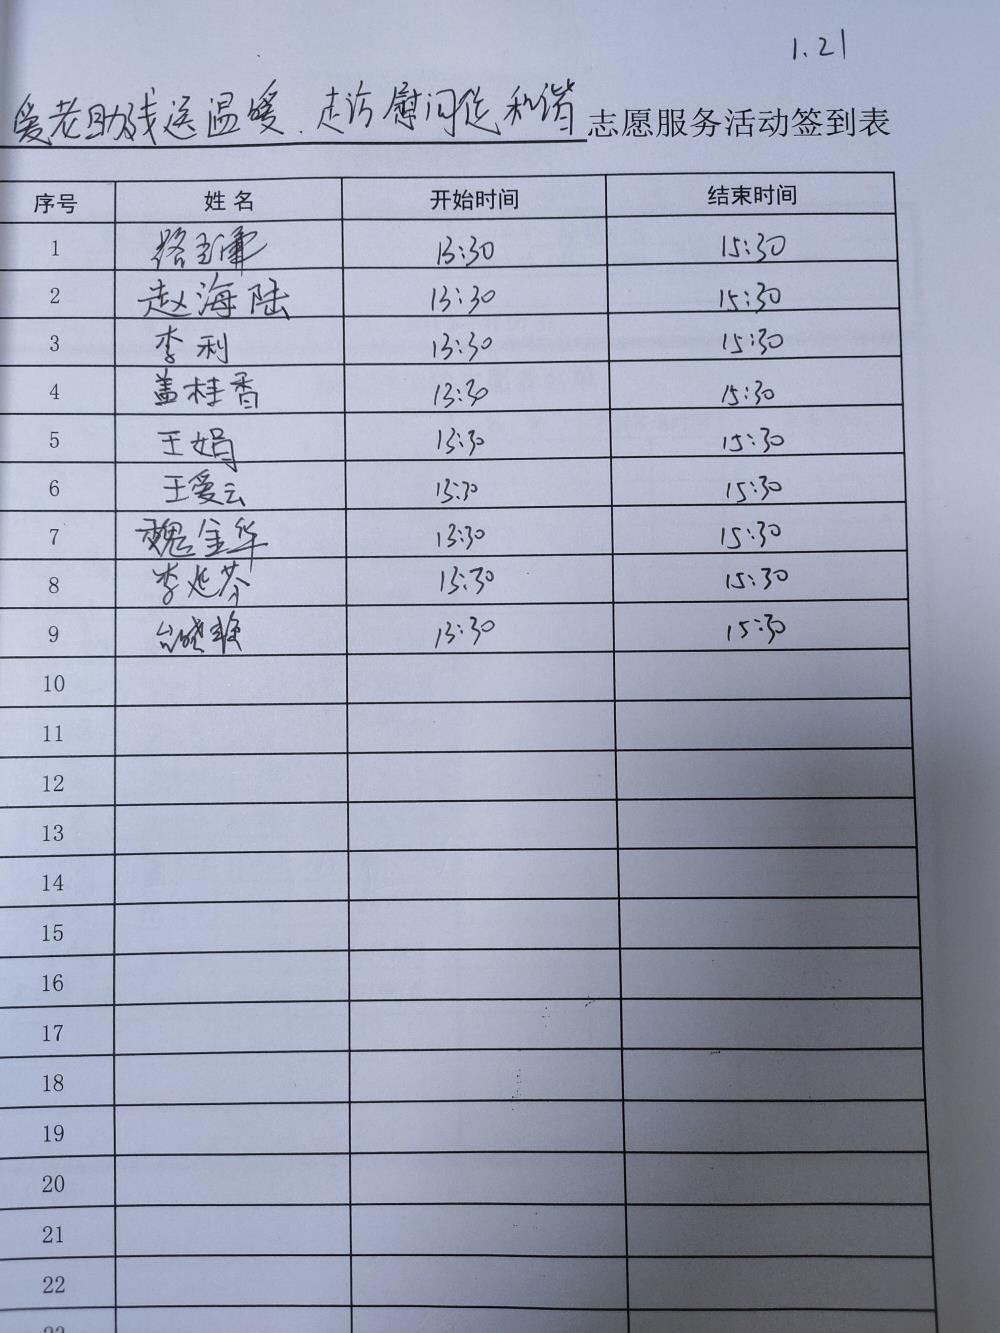 1.21
爱老助残送温暖.走访慰问送和谐志愿服务活动签到表
序号 姓名 开始时间 结束时间
1 13:30 15:30
2 赵海陆 13:30 15:30
3 李利 13:30 15:30
4 盖桂香 13:30 15:30
5 王娟 13:30 15:30
6 王爱云 13:30 15:30
7 魏金华 13:30 15:30
8 李延芬 13:30 15:30
9 13:30 15:30
10
11
12
13
14
15
16
17
18
19
20
21
22
23